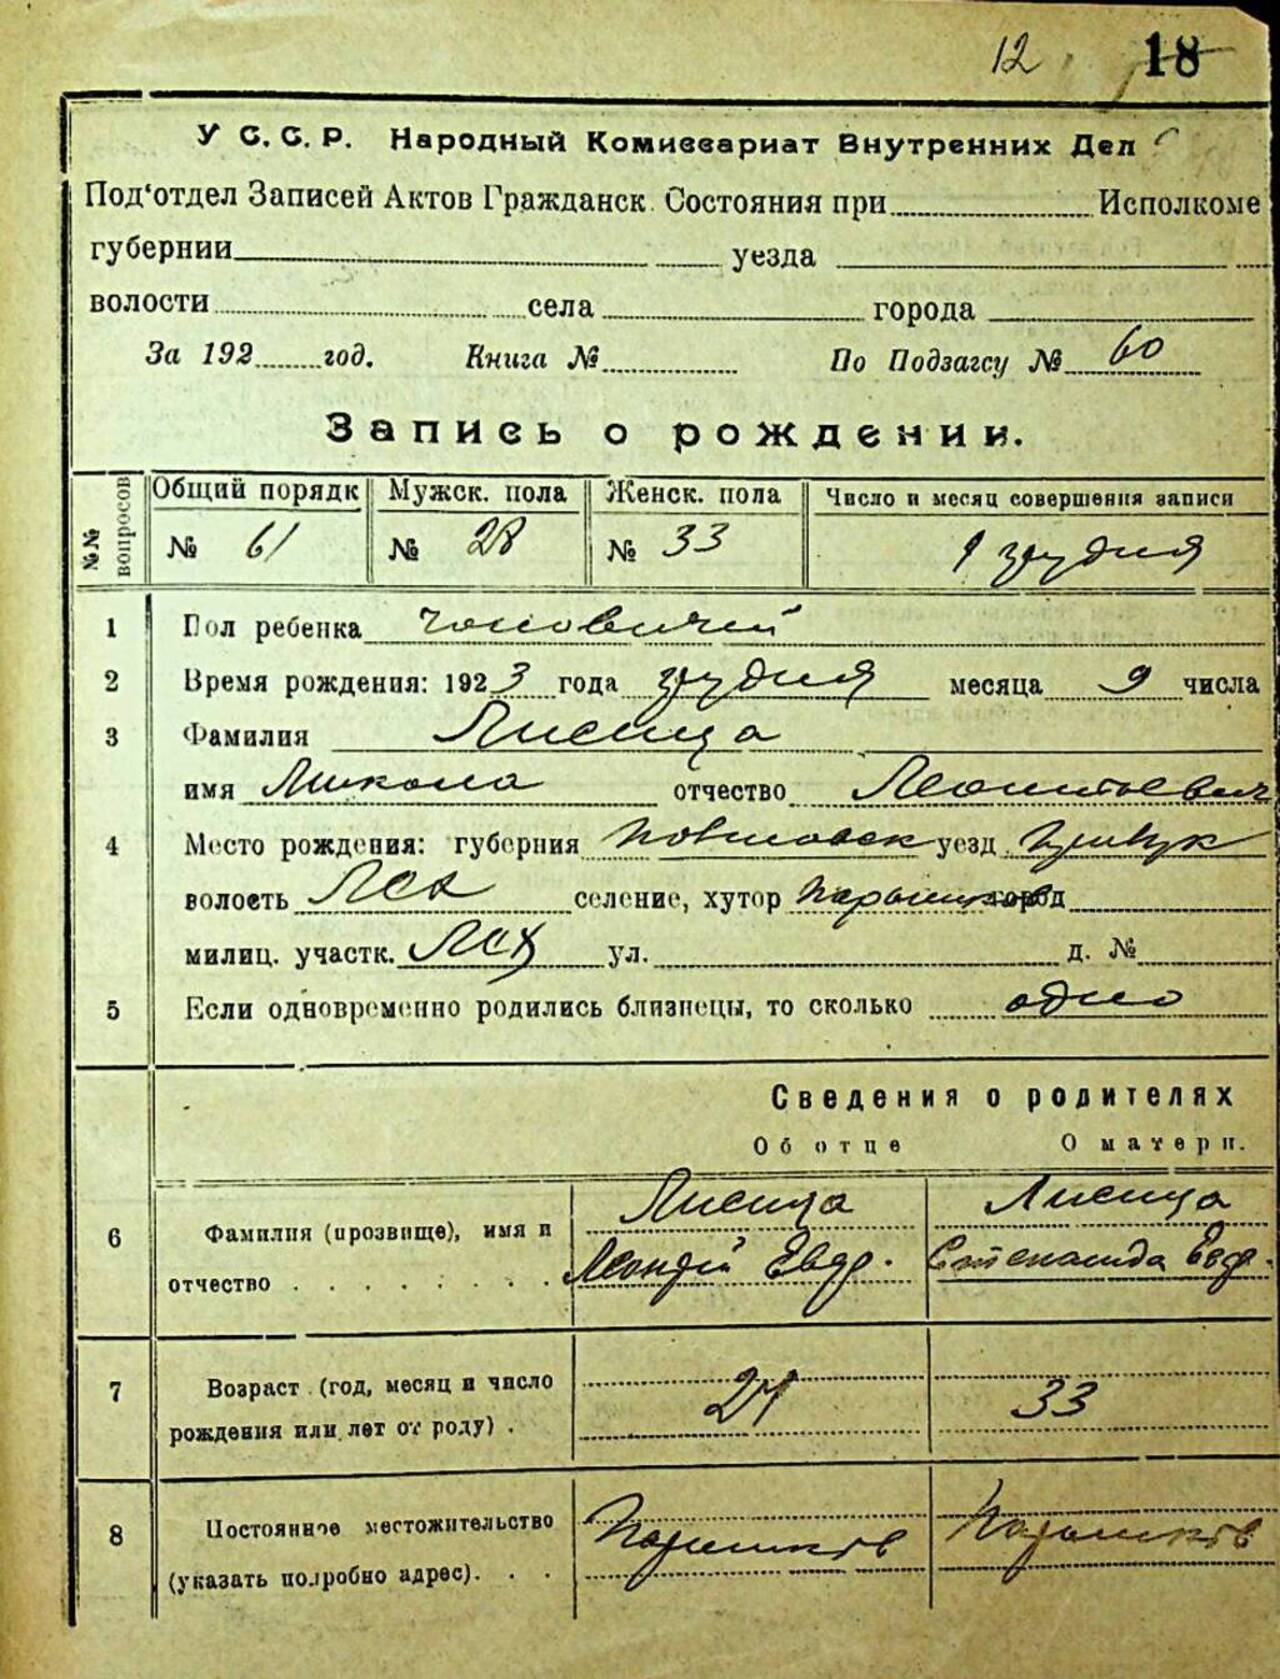 12 18
У С. С. Р. Народный Комиссариат Внутренних Дел
Под'отдел Записей Актов Гражданск. Состояния при Исполкоме
губернии уезда
волости села города
За 192 год. Книга № По Подзагсу № 60
Запись о рождении.
№№ вопросов Общий порядк Мужск. пола Женск. пола Число и месяц совершения записи
№ 61 № 28 № 33 9 грудня
1 Пол ребенка чоловичей
2 Время рождения: 1923 года грудня месяца 9 числа
3 Фамилия Лисица
имя Микола отчество Леонтьевич
4 Место рождения: губерния уезд
волость селение, хутор город
милиц. участк. ул. д. №
5 Если одновременно родились близнецы, то сколько одно
Сведения о родителях
Об отце О матери.
Лисица Лисица
6 Фамилия (прозвище), имя и
отчество Евдр. Степанида Евдр.
7 Возраст (год, месяц и число
рождения или лет от роду) . 33
8 Постоянное местожительство
(указать подробно адрес). . .